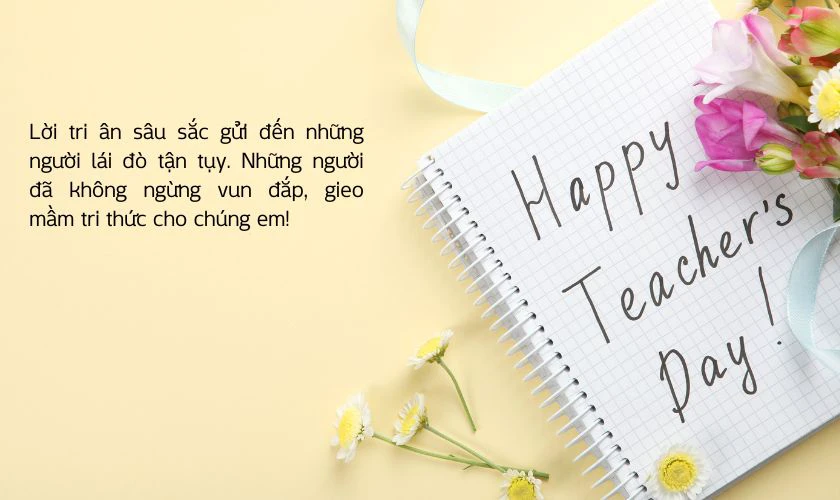 Lời tri ân sâu sắc gửi đến những
người lái đò tận tụy. Những người
đã không ngừng vun đắp, gieo
mầm tri thức cho chúng em!
Happy
Teacher's
Day!